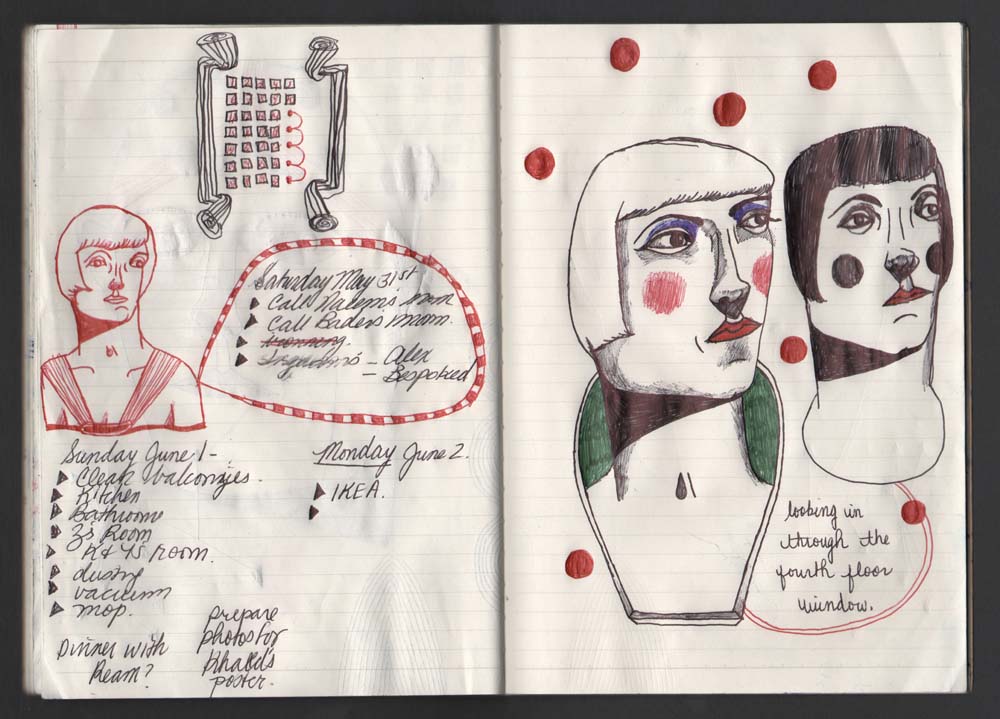 Saturday May 31st
Call Nalem's mom
Call Bader's mom.
– Alex
– Bespoked
Sunday June 1 –
Clean balconies.
Kitchen
Bathrooms
Z's Room
K & Y's room.
dusting
vacuum
mop.
Dinner with
Ream?
prepare
photos for
Khalid's
poster.
Monday June 2.
IKEA.
looking in
through the
fourth floor
window.